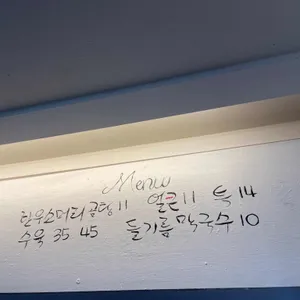 Menu
한우소머리곰탕 11 얼큰 11 특 14
수육 35 45 들기름막국수 10